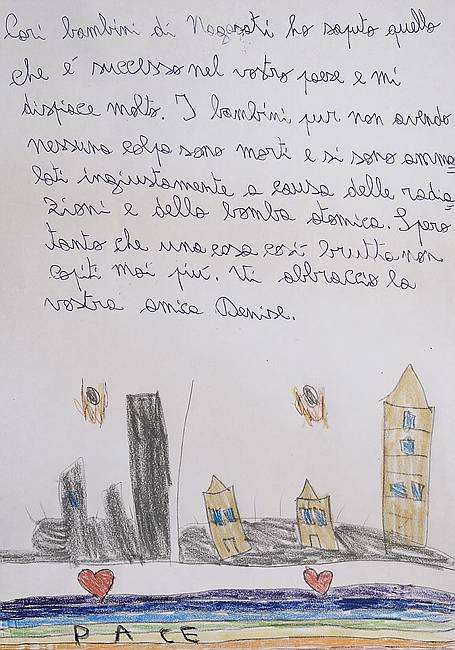 Cari bambini di Nagasati ho saputo quello
che é successo nel vostro paese e mi
dispiace molto. I bambini pur non avendo
nessuna colpa sono morti e si sono amma
lati ingiustamente a causa delle radia
zioni e della bomba atomica. Spero
tanto che una cosa così brutta non
capiti mai più. Vi abbraccio la
vostra amica Denise.
PACE